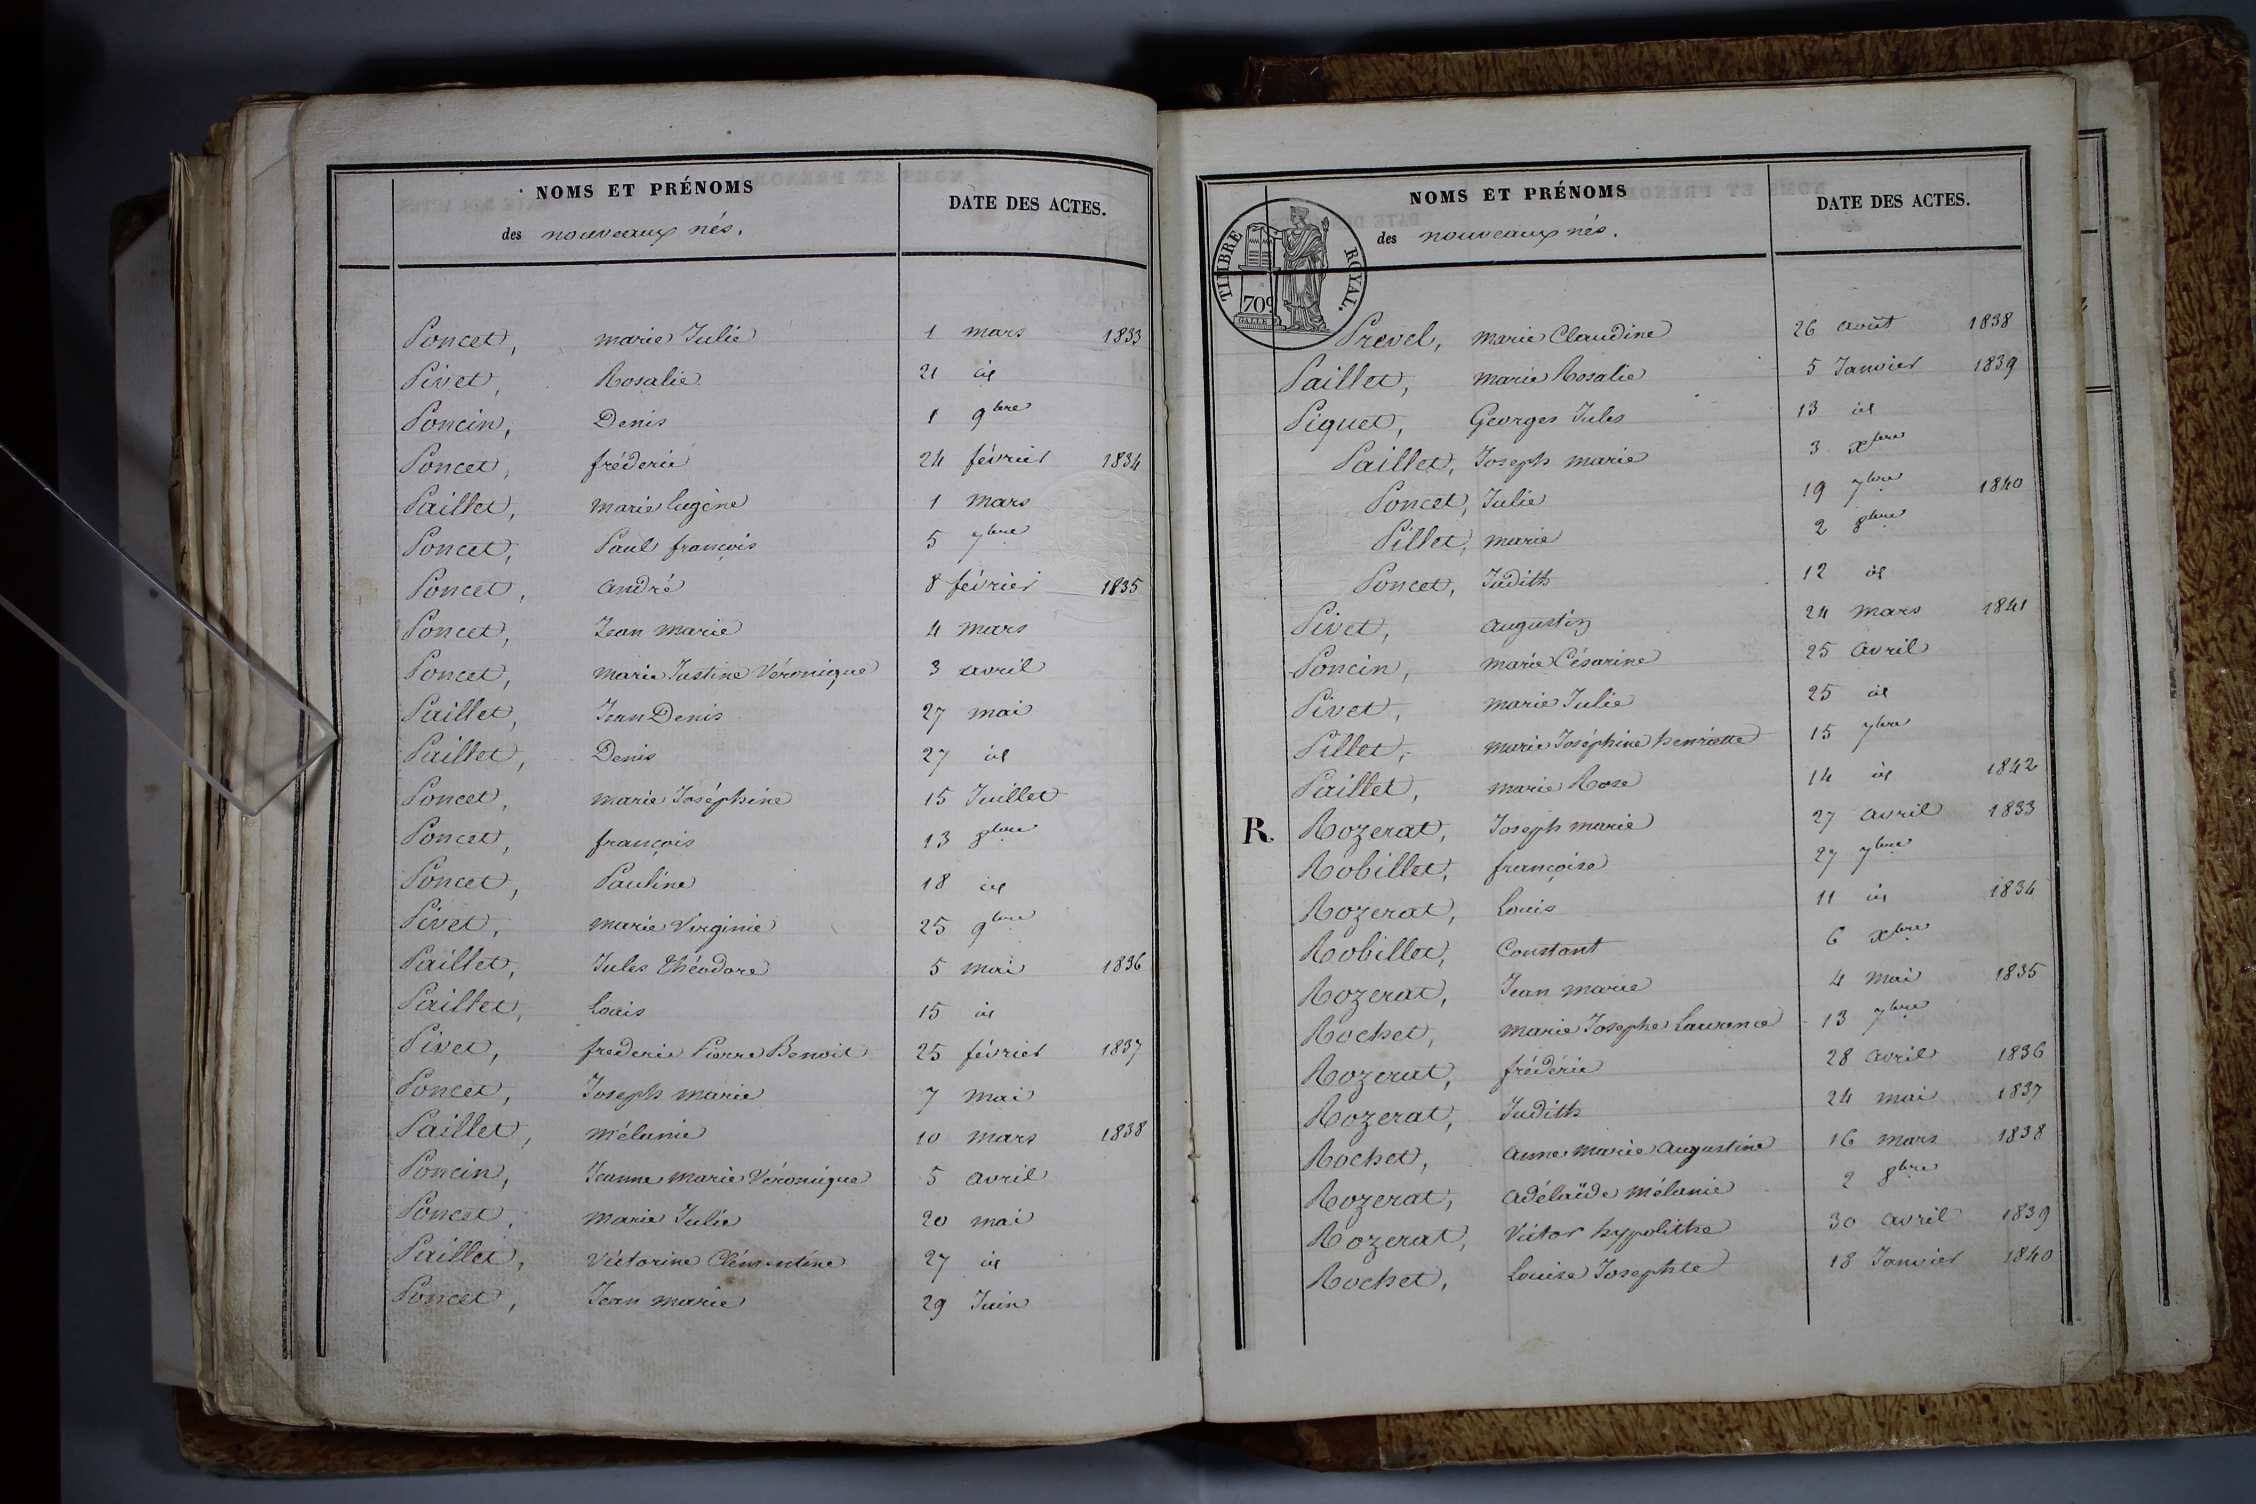 NOMS ET PRÉNOMS
des nouveaux nés.
DATE DES ACTES.
Poncet, marie Julie 1 mars 1833
Pivet, Rosalie 21 id
Poncin, Denis 1 9bre
Poncet, fréderic 24 février 1834
Paillet, marie Eugène 1 mars
Poncet, Paul françois 5 7bre
Poncet, andré 8 février 1835
Poncet, Jean marie 4 mars
Poncet, marie Justine Véronique 3 avril
Paillet, Jean Denis 27 mai
Paillet, Denis 27 id
Poncet, marie Joséphine 15 Juillet
Poncet, françois 13 8bre
Poncet, Pauline 18 id
Pivet, marie Virginie 25 9bre
Paillet, Jules Théodore 5 mai 1836
Paillet, Louis 15 id
Pivet, frederic Pierre Benoit 25 février 1837
Poncet, Joseph marie 7 mai
Paillet, mélanie 10 mars 1838
Poncin, Jeanne marie Véronique 5 avril
Poncet, marie Julie 20 mai
Paillet, Victorine Clémentine 27 id
Poncet, Jean marie 29 Juin
NOMS ET PRÉNOMS
des nouveaux nés.
DATE DES ACTES.
TIMBRE ROYAL.
70c
Prevel, marie Claudine 26 août 1838
Paillet, marie Rosalie 5 Janvier 1839
Piquet, Georges Jules 13 id
Paillet, Joseph marie 3 xbre
Poncet, Julie 19 7bre 1840
Pillet, marie 2 8bre
Poncet, Judith 12 id
Pivet, augustin 24 mars 1841
Poncin, marie Césarine 25 avril
Pivet, marie Julie 25 id
Pillet, marie Joséphine henriette 15 7bre
Paillet, marie Rose 14 id 1842
R. Rozerat, Joseph marie 27 avril 1833
Robillet, françoise 27 7bre
Rozerat, Louis 11 id 1834
Robillet, Constant 6 xbre
Rozerat, Jean marie 4 mai 1835
Rochet, marie Josephe Laurence 13 7bre
Rozerat, frédéric 28 avril 1836
Rozerat, Judith 24 mai 1837
Rochet, anne marie augustine 16 mars 1838
Rozerat, adélaïde mélanie 2 8bre
Rozerat, Victor hypolithe 30 avril 1839
Rochet, Louise Josephte 18 Janvier 1840